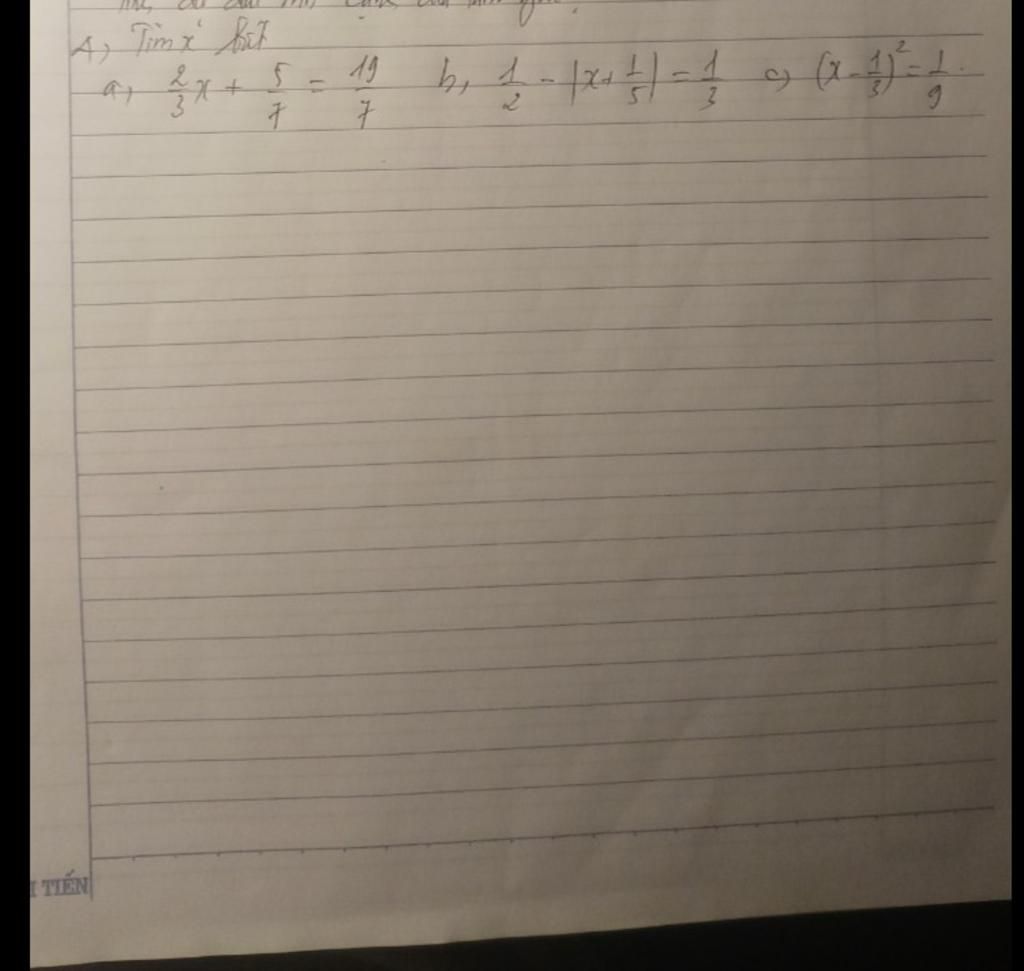 A, Tìm x biết
a, 2/3 x + 5/7 = 19/7 b, 1/2 - |x + 1/5| = 1/3 c, (x - 1/3)² = 1/9.
TIẾN